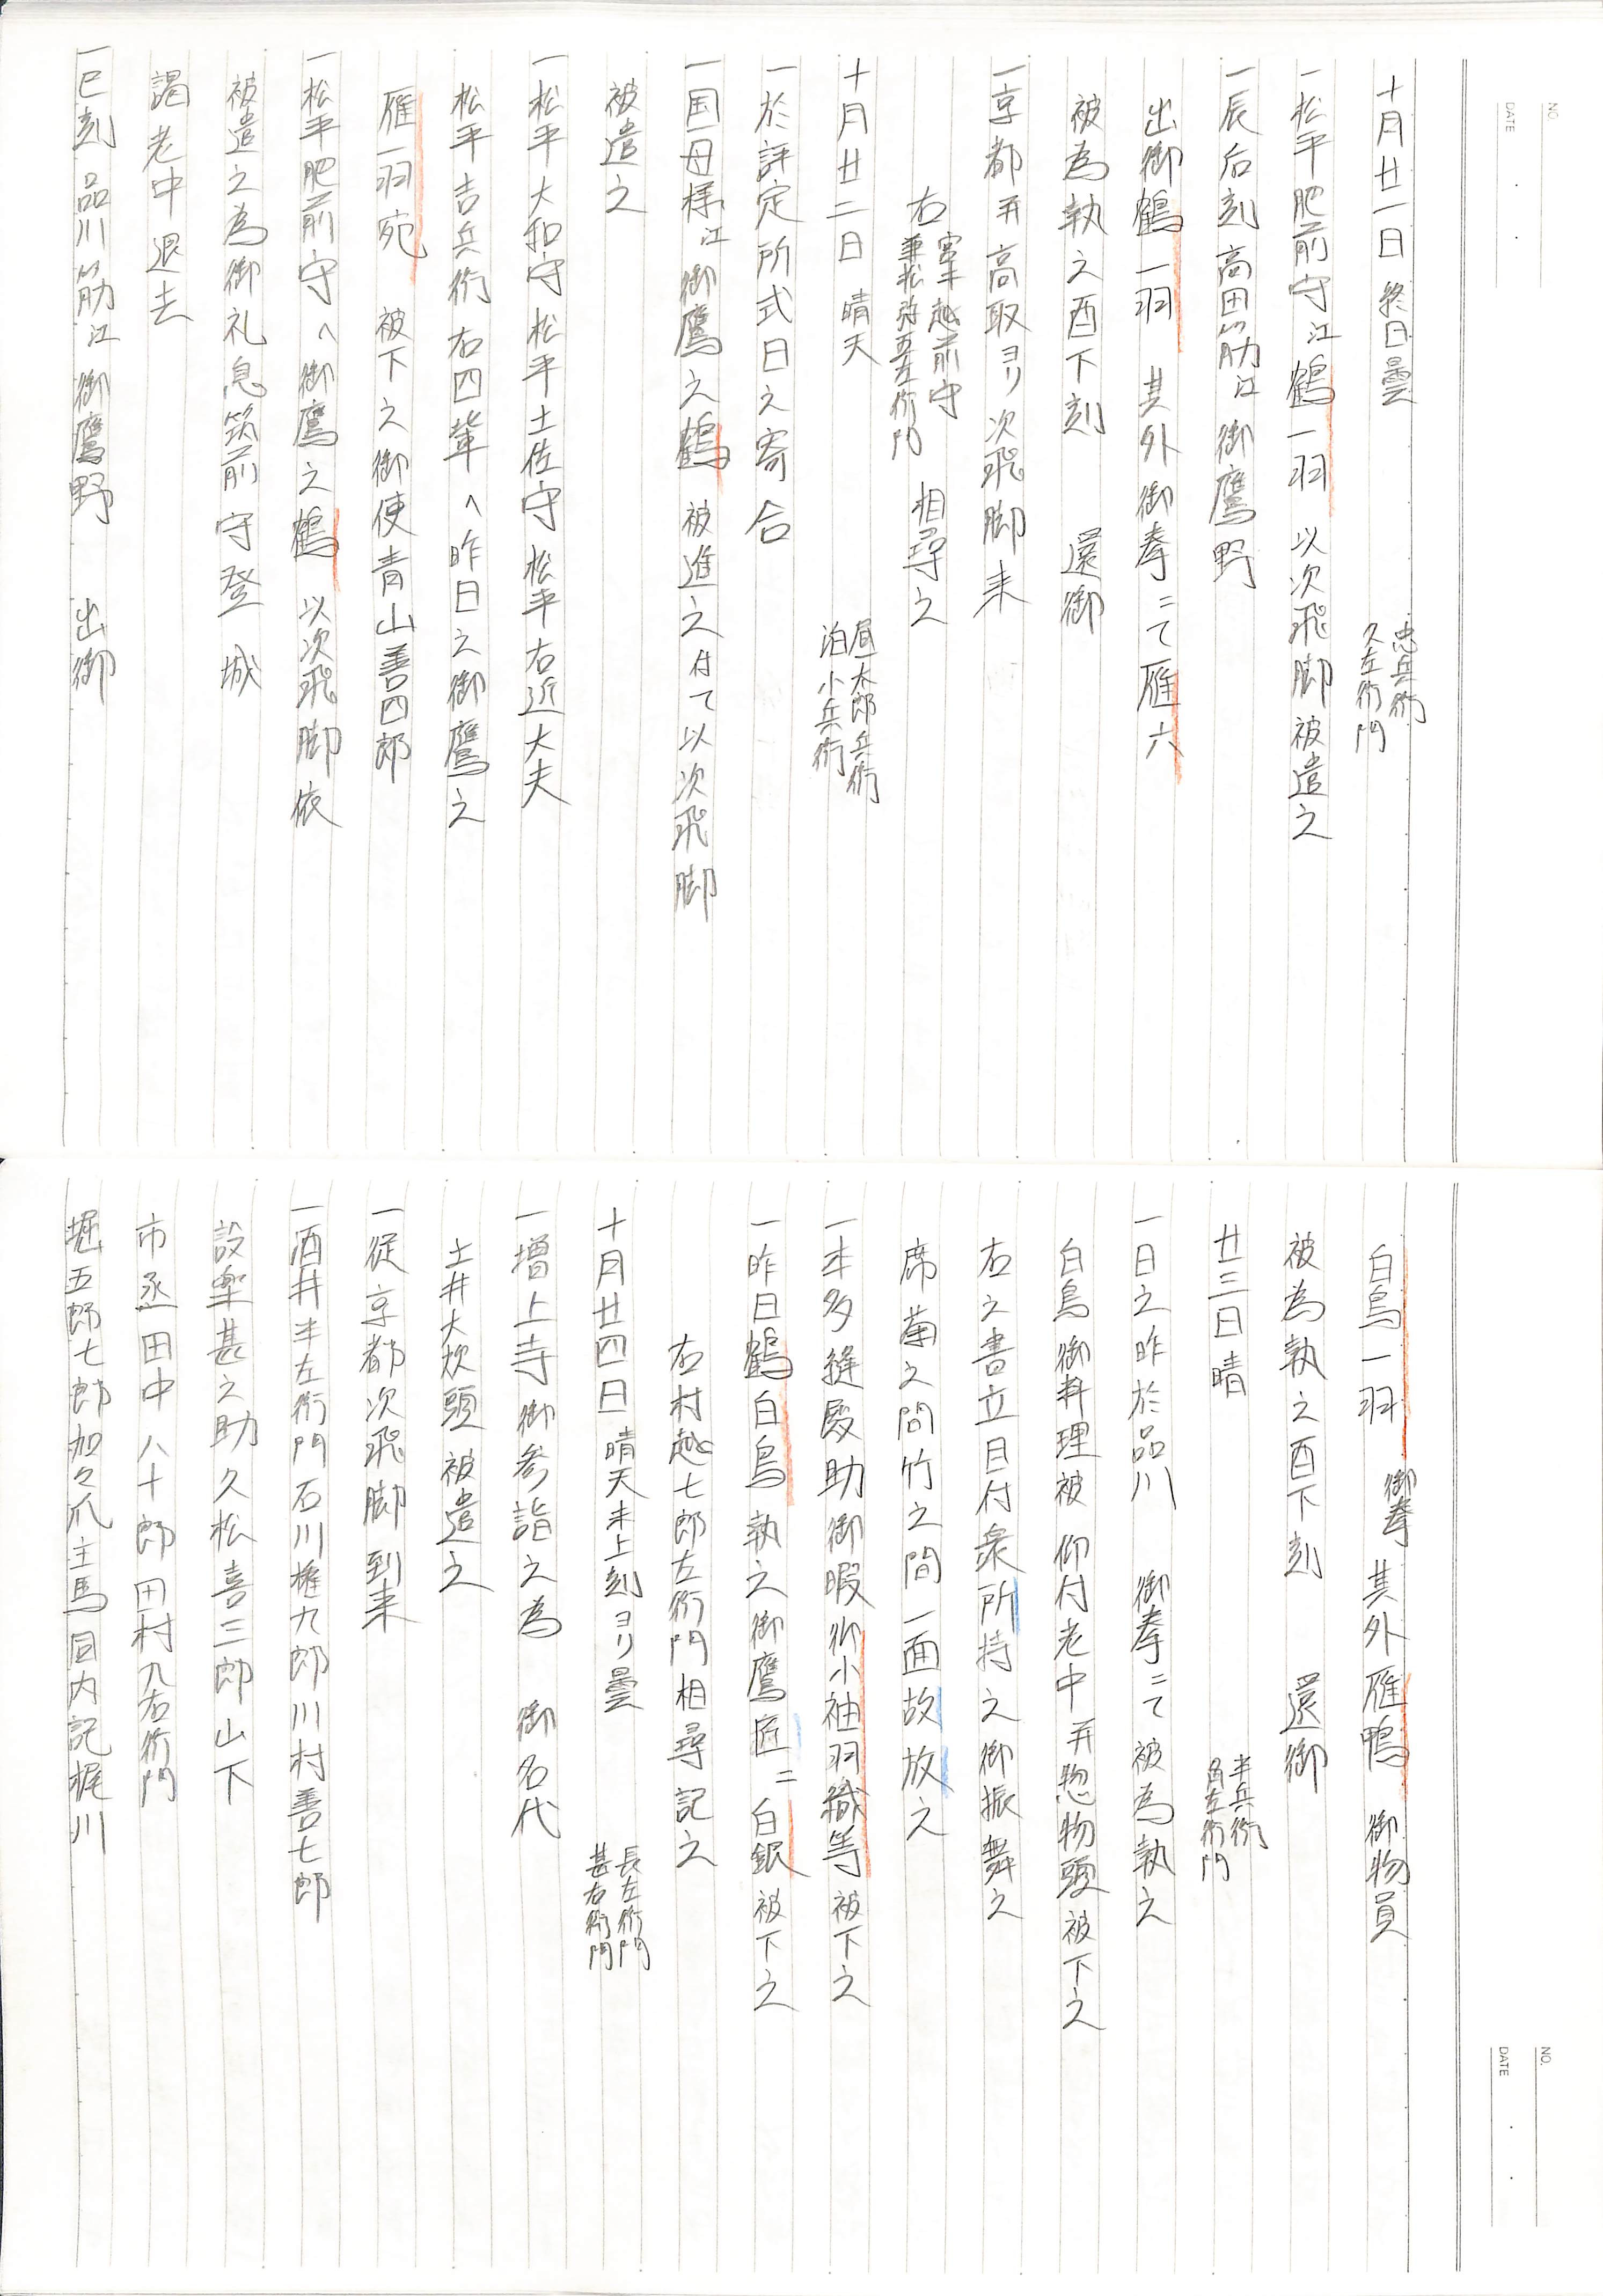 NO.
DATE
十月廿一日 終日曇
忠兵衛
久左衛門
一松平肥前守江鶴一羽 以次飛脚被遣之
一辰后刻高田筋江御鷹野
出御鶴一羽 其外御拳ニて雁六
被為執之酉下刻 還御
一京都并高取ヨリ次飛脚来
右 宮本越前守
兼松弥五左衛門 相尋之
十月廿二日 晴天
昼太郎兵衛
泊小兵衛
一於評定所式日之寄合
一国母様江御鷹之鶴被進之付て以次飛脚
被遣之
一松平大和守松平土佐守松平右近大夫
松平吉兵衛右四輩へ昨日之御鷹之
雁一羽宛 被下之御使青山善四郎
一松平肥前守へ御鷹之鶴 以次飛脚依
被遣之為御礼息筑前守登城
謁老中退去
一巳刻品川筋江御鷹野 出御
NO.
DATE
白鳥一羽 御拳 其外雁鴨 御物員
被為執之酉下刻 還御
廿三日晴
半兵衛
角左衛門
一日之昨於品川 御拳ニて被為執之
白鳥御料理被 仰付老中并惣物頭被下之
右之書立目付衆所持之御振舞之
席菊之間竹之間一面故放之
一本多縫殿助御暇御小袖羽織等被下之
一昨日鶴白鳥執之御鷹匠ニ白銀被下之
右村越七郎左衛門相尋記之
十月廿四日 晴天未上刻ヨリ曇
長左衛門
甚右衛門
一増上寺御参詣之為 御名代
土井大炊頭被遣之
一従京都次飛脚到来
一酒井半左衛門石川権九郎川村善七郎
設楽甚之助久松喜三郎山下
市丞田中八十郎田村九右衛門
堀五郎七郎加々爪主馬同内記梶川